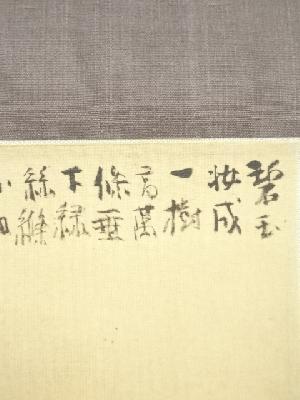 碧玉
妆成
一樹
高萬
條垂
下綠
絲縧